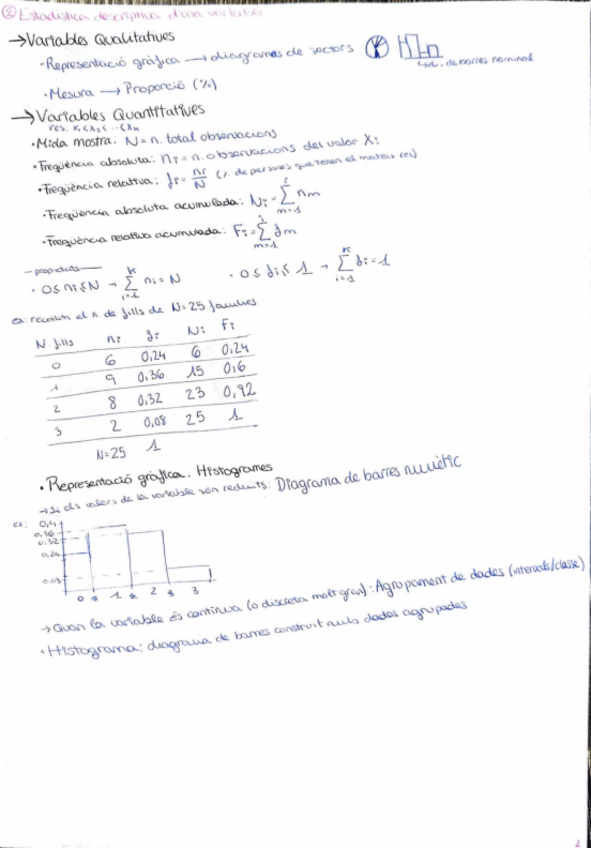 ② Estadística descriptiva d'una variable
→ Variables Qualitatives
· Representació gràfica → diagrames de sectors
↳ d. de barres nominal
· Mesura → Proporció (%)
→ Variables Quantitatives
res: x₁<x₂<...<xₙ
· Mida mostra: N = n. total observacions
· Freqüència absoluta: nᵢ = n. observacions del valor Xᵢ
· Freqüència relativa: fᵢ = nᵢ/N (% de persones que tenen el mateix res)
· Freqüència absoluta acumulada: Nᵢ = Σ nm
i
m=1
· Freqüència relativa acumulada: Fᵢ = Σ fm
i
m=1
propietats
· 0 ≤ nᵢ ≤ N → Σ nᵢ = N · 0 ≤ fᵢ ≤ 1 → Σ fᵢ = 1
k
i=1
k
i=1
ex: recollim el n. de fills de N=25 famílies
N. fills nᵢ fᵢ Nᵢ Fᵢ
0 6 0,24 6 0,24
1 9 0,36 15 0,6
2 8 0,32 23 0,92
3 2 0,08 25 1
N=25 1
· Representació gràfica. Histogrames
→ Si els valors de la variable són reduïts: Diagrama de barres numèric
ex:
0,4
0,36
0,32
0,24
0,08
0 1 2 3
→ Quan la variable és contínua (o discreta molt gran): Agrupament de dades (intervals/classe)
· Histograma: diagrama de barres construït amb dades agrupades
1